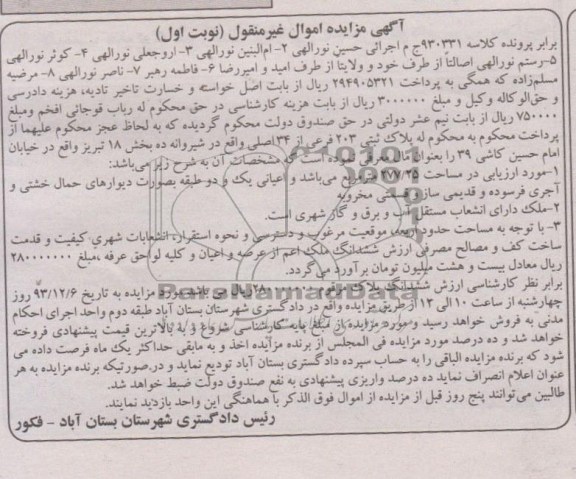 آگهی مزایده اموال غیرمنقول (نوبت اول)
برابر پرونده کلاسه ۹۳۰۳۳۱ج م اجرائی حسین نورالهی ۲- ام‌البنین نورالهی ۳- اروجعلی نورالهی ۴- کوثر نورالهی
۵-رستم نورالهی اصالتا از طرف خود و ولایتا از طرف امید و امیررضا ۶- فاطمه رهبر ۷- ناصر نورالهی ۸- مرضیه
مسلم‌زاده که همگی به پرداخت ۲۹۴۹۰۵۳۲۱ ریال از بابت اصل خواسته و خسارت تاخیر تادیه، هزینه دادرسی
و حق‌الوکاله وکیل و مبلغ ۳۰۰۰۰۰۰ ریال از بابت هزینه کارشناسی در حق محکوم له رباب قوجائی افخم ومبلغ
۷۵۰۰۰۰ ریال از بابت نیم عشر دولتی در حق صندوق دولت محکوم گردیده که به لحاظ عجز محکوم علیهما از
پرداخت محکوم به محکوم له پلاک ثبتی ۲۰۳ فرعی از ۳۴اصلی واقع در شیروانه ده بخش ۱۸ تبریز واقع در خیابان
امام حسین کاشی ۳۹ را بعنوان مال معرفی نموده است که مشخصات آن به شرح زیر می‌باشد:
۱-مورد ارزیابی در مساحت ۲۷۷/۲۵ مترمربع می‌باشد و اعیانی یک و دو طبقه بصورت دیوارهای حمال خشتی و
آجری فرسوده و قدیمی ساز و قسمتی مخروبه
۲-ملک دارای انشعاب مستقل آب و برق و گاز شهری است.
۳- با توجه به مساحت حدود اربعه، موقعیت مرغوب و دسترسی و نحوه استقرار، انشعابات شهری کیفیت و قدمت
ساخت کف و مصالح مصرفی ارزش ششدانگ ملک اعم از عرصه و اعیان و کلیه لواحق عرفه ،مبلغ ۲۸۰۰۰۰۰۰۰
ریال معادل بیست و هشت میلیون تومان برآورد می‌گردد.
برابر نظر کارشناسی ارزش ششدانگ پلاک مرقوم ۲۸۰۰۰۰۰۰۰ ریال می باشد مورد مزایده به تاریخ ۹۳/۱۲/۶ روز
چهارشنبه از ساعت ۱۰ الی ۱۲ از طریق مزایده واقع در دادگستری شهرستان بستان آباد طبقه دوم واحد اجرای احکام
مدنی به فروش خواهد رسید و مورد مزایده از مبلغ پایه کارشناسی شروع و به بالاترین قیمت پیشنهادی فروخته
خواهد شد و ده درصد مورد مزایده فی المجلس از برنده مزایده اخذ و به مابقی حداکثر یک ماه فرصت داده می
شود که برنده مزایده الباقی را به حساب سپرده دادگستری بستان آباد تودیع نماید و در.صورتیکه برنده مزایده به هر
عنوان اعلام انصراف نماید ده درصد واریزی پیشنهادی به نفع صندوق دولت ضبط خواهد شد.
طالبین می‌توانند پنج روز قبل از مزایده از اموال فوق الذکر با هماهنگی این واحد بازدید نمایند.
رئیس دادگستری شهرستان بستان آباد - فکور